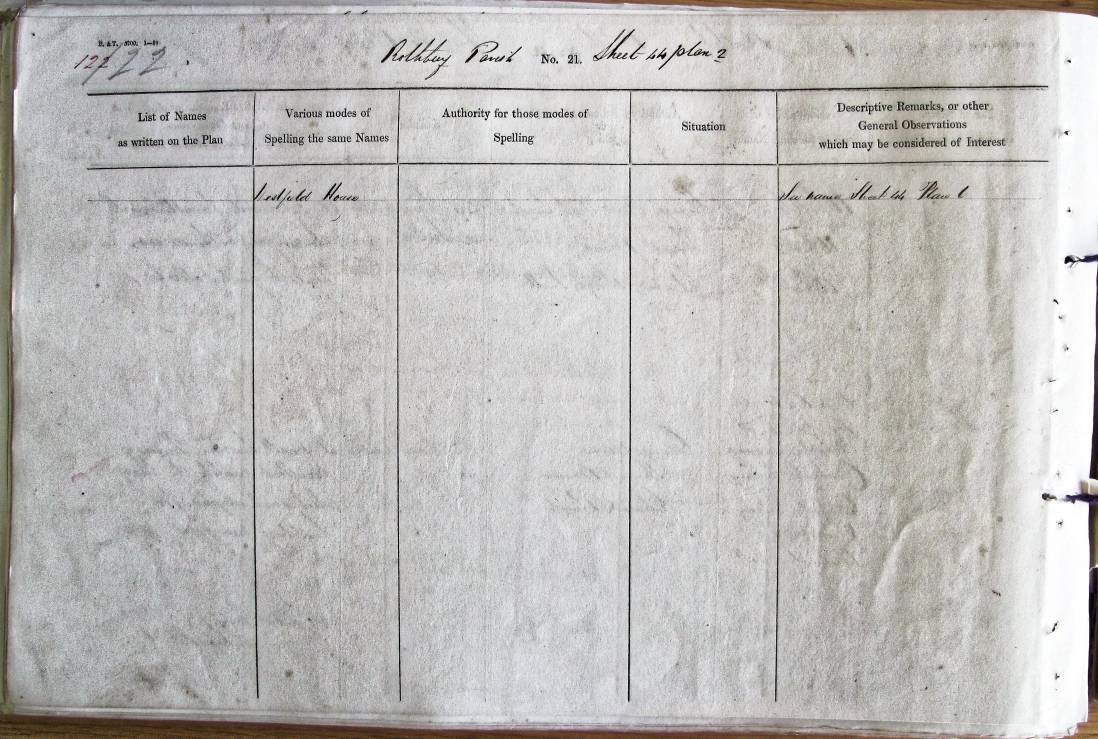 122 122
Rothbury Parish No. 21. Sheet 44 plan 2
List of Names
as written on the Plan
Various modes of
Spelling the same Names
Authority for those modes of
Spelling
Situation
Descriptive Remarks, or other
General Observations
which may be considered of Interest
Westfield House
See name Sheet 44 Plan 6